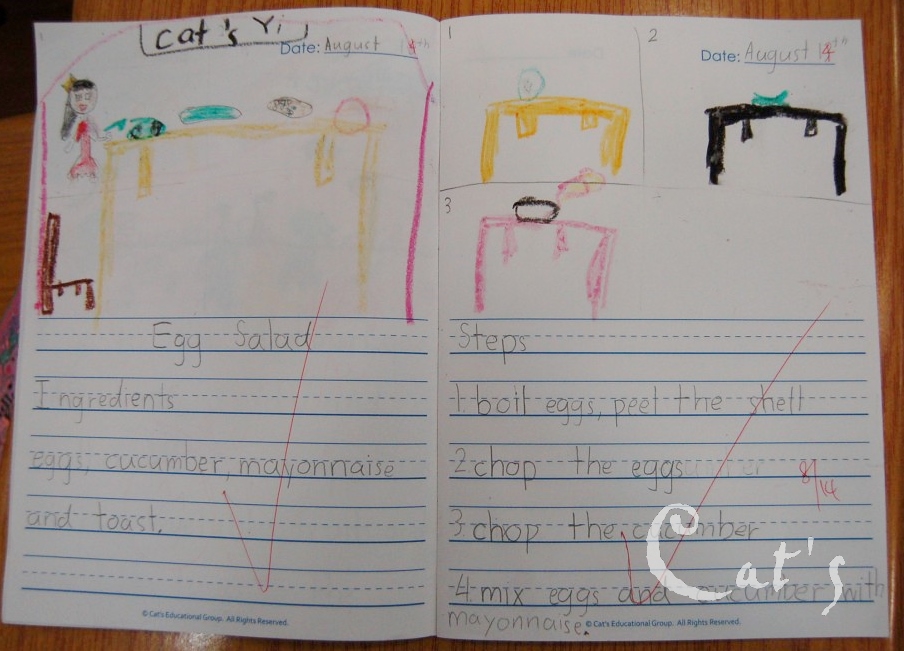 cat's Yi
Date: August 14th
Egg Salad
Ingredients
eggs, cucamber, mayonnaise
and toast.
© Cat's Educational Group. All Rights Reserved.
1
2
Date: August 14th
3
Steps
1. boil eggs, peel the shell
2. chop the eggs
8/14
3. chop the cucumber
4. mix eggs and cucumber with
mayonnaise.
© Cat's Educational Group. All Rights Reserved.
Cat's